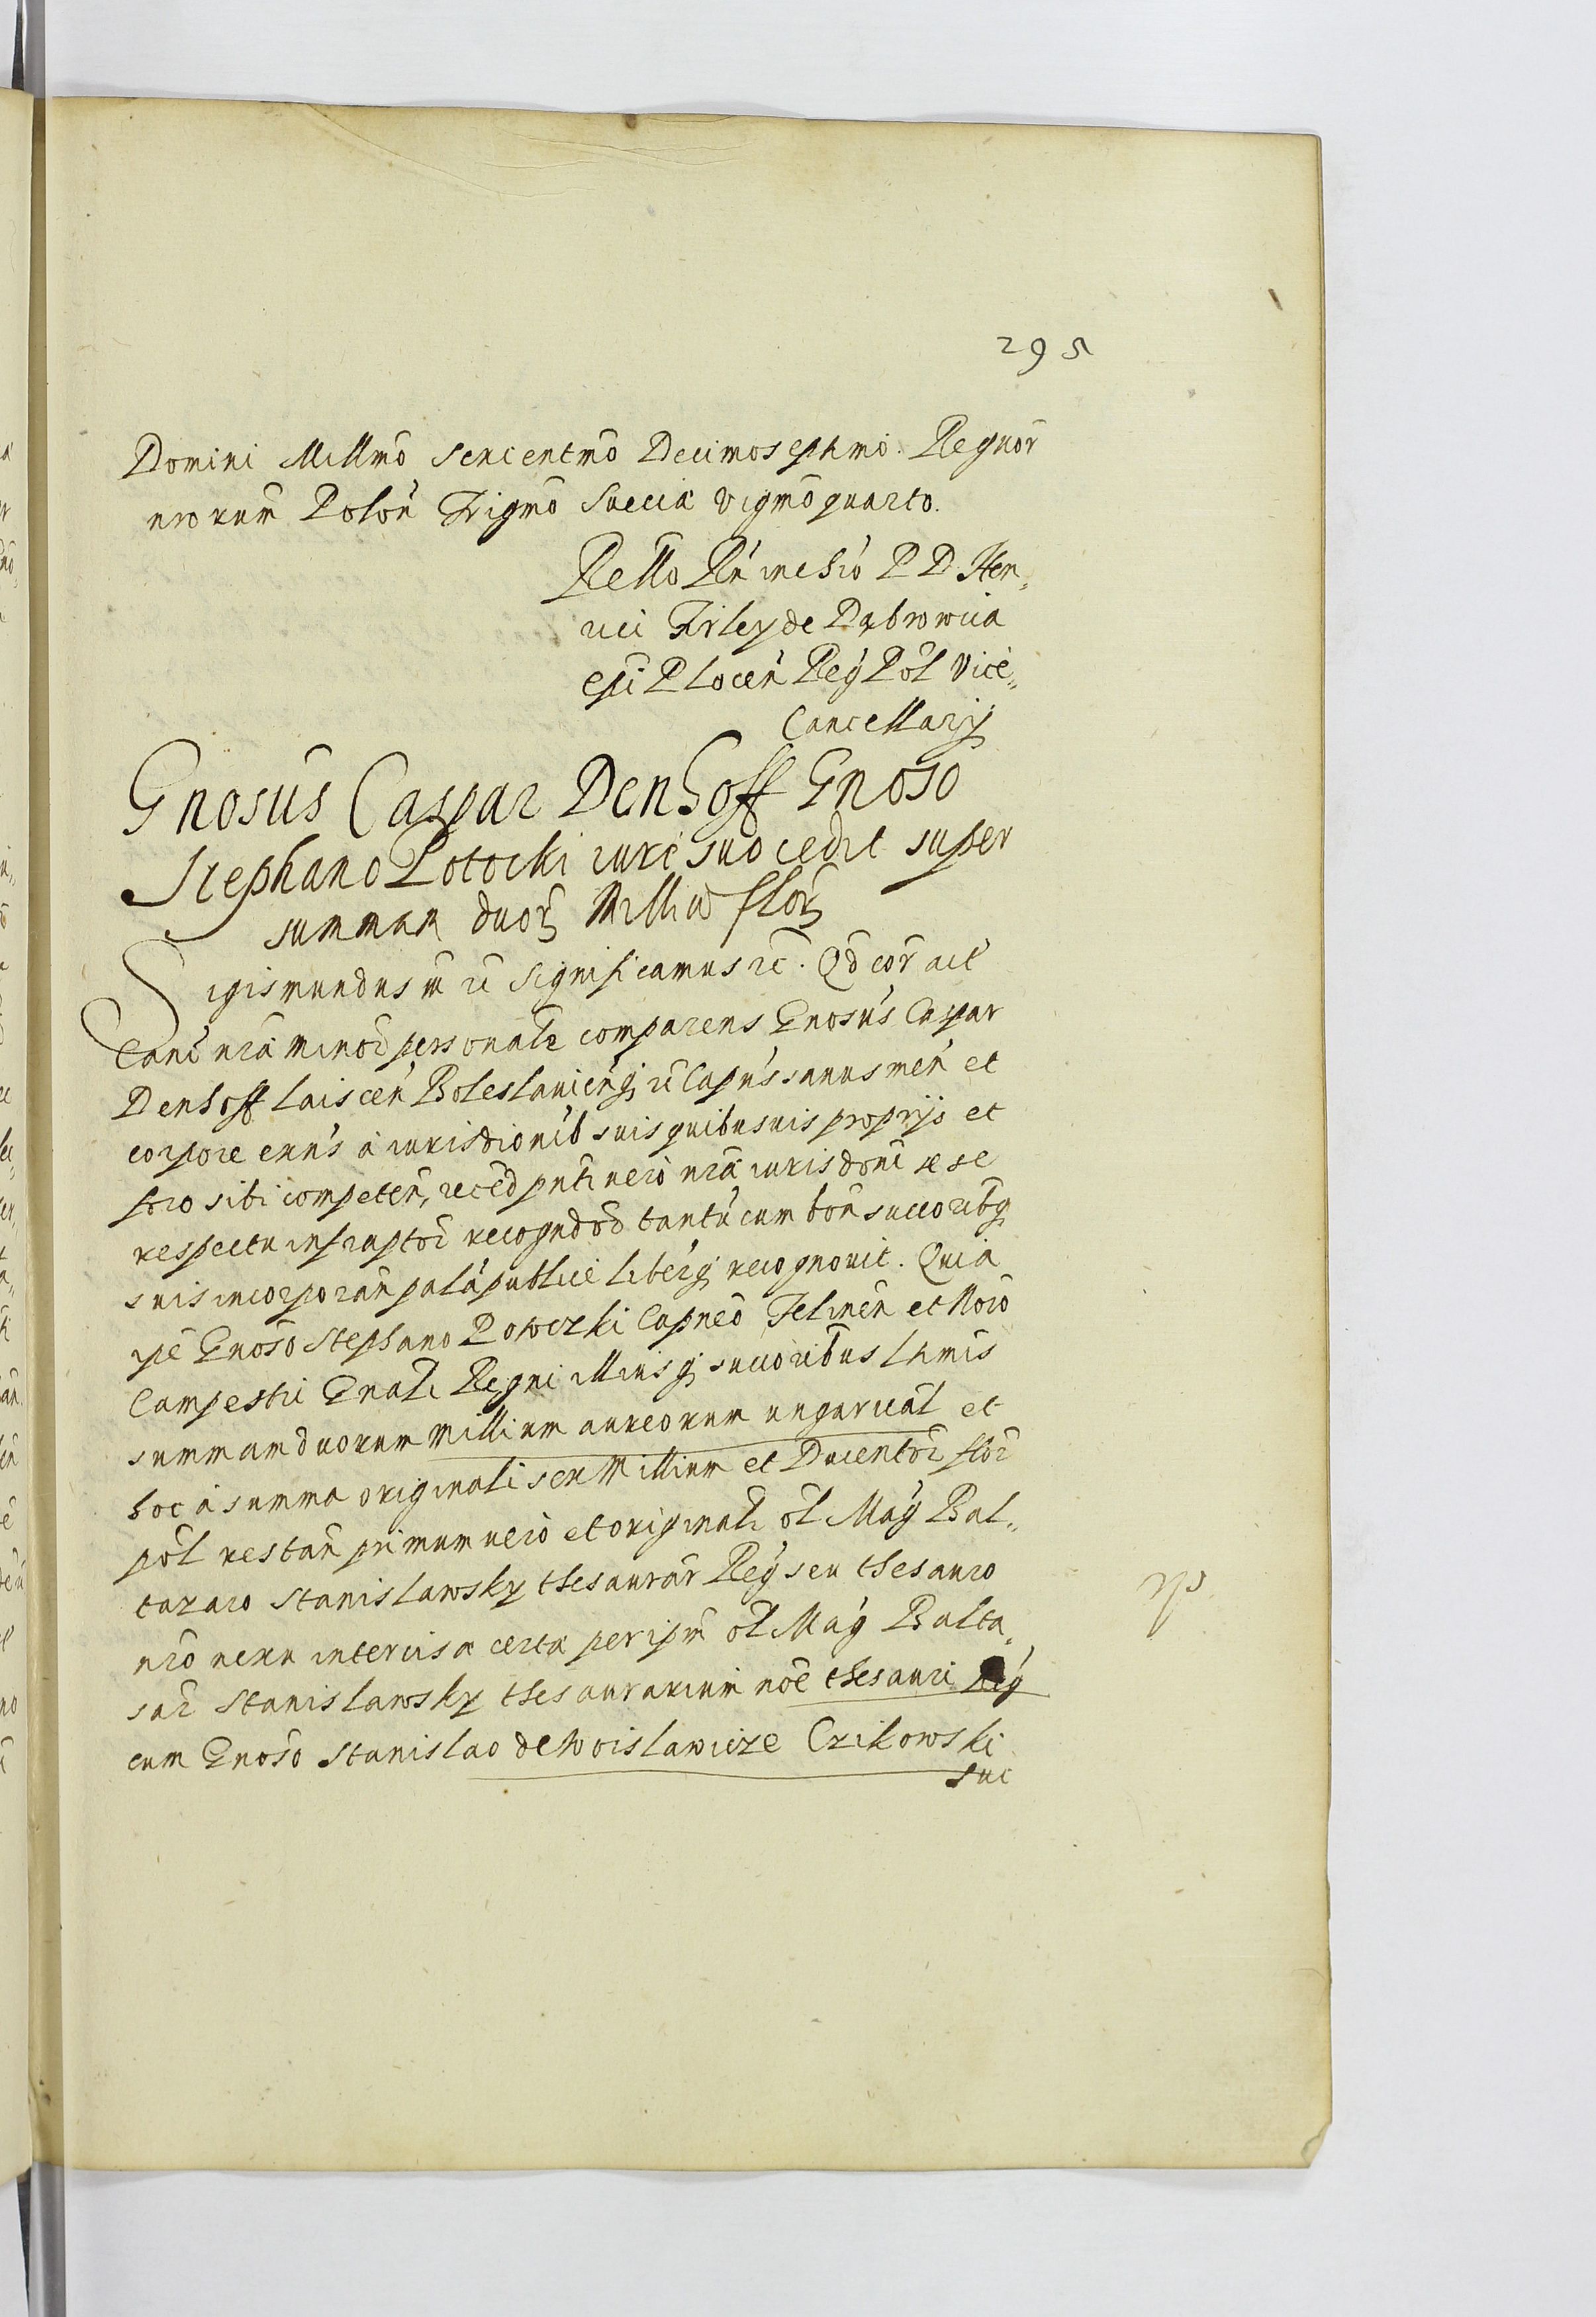 295
Domini Millmo sexcentmo Decimoseptimo. Regnor
nrorum Polon Trigmo Sueciæ vigmo quarto.
Rello Rn in chro P D Hen„
rici Firley de Dąbrowica
epi Plocen Reg Pol Vice„
Cancellarij
Gnosus Caspar Denhoff Gnoso
Stephano Potocki iure suo cedit super
summam duorę Milliu florę
Sigismundus III etc Significamus etc. Qd cor act
Canc nræ minor personalr comparens Gnosus Caspar
Denhoff Laiscen Boleslauienq etc Capns sanus men et
corpore exns à iurisdionib suis quibusuis proprijs et
foro sibi competen, reced pnti vero nræ iurisdoni se se
respectu infraptor recogndod tantu cum bon succoribq
suis incorporan palà publice liberq recognouit. Quia
ipe Gnoso Stephano Potoczki Capneo Felinen et Noro
Campestri Gnali Regni illiusq succoribus ltmis
summam duorum Millium aureorum ungarical et
hoc à summa originali sex Millium et Ducentor flor
pol restan primum vero et originali ol Mag Bal„
tazaro Stanislawsky thesaurar Reg seu thesauro
nro vexu intercisæ certæ per ipm ol Mag Balta„
sar Stanislawsky thesaurarium noe thesauri Reg
cum Gnoso Stanislao de Woislawicze Czikowski
suc